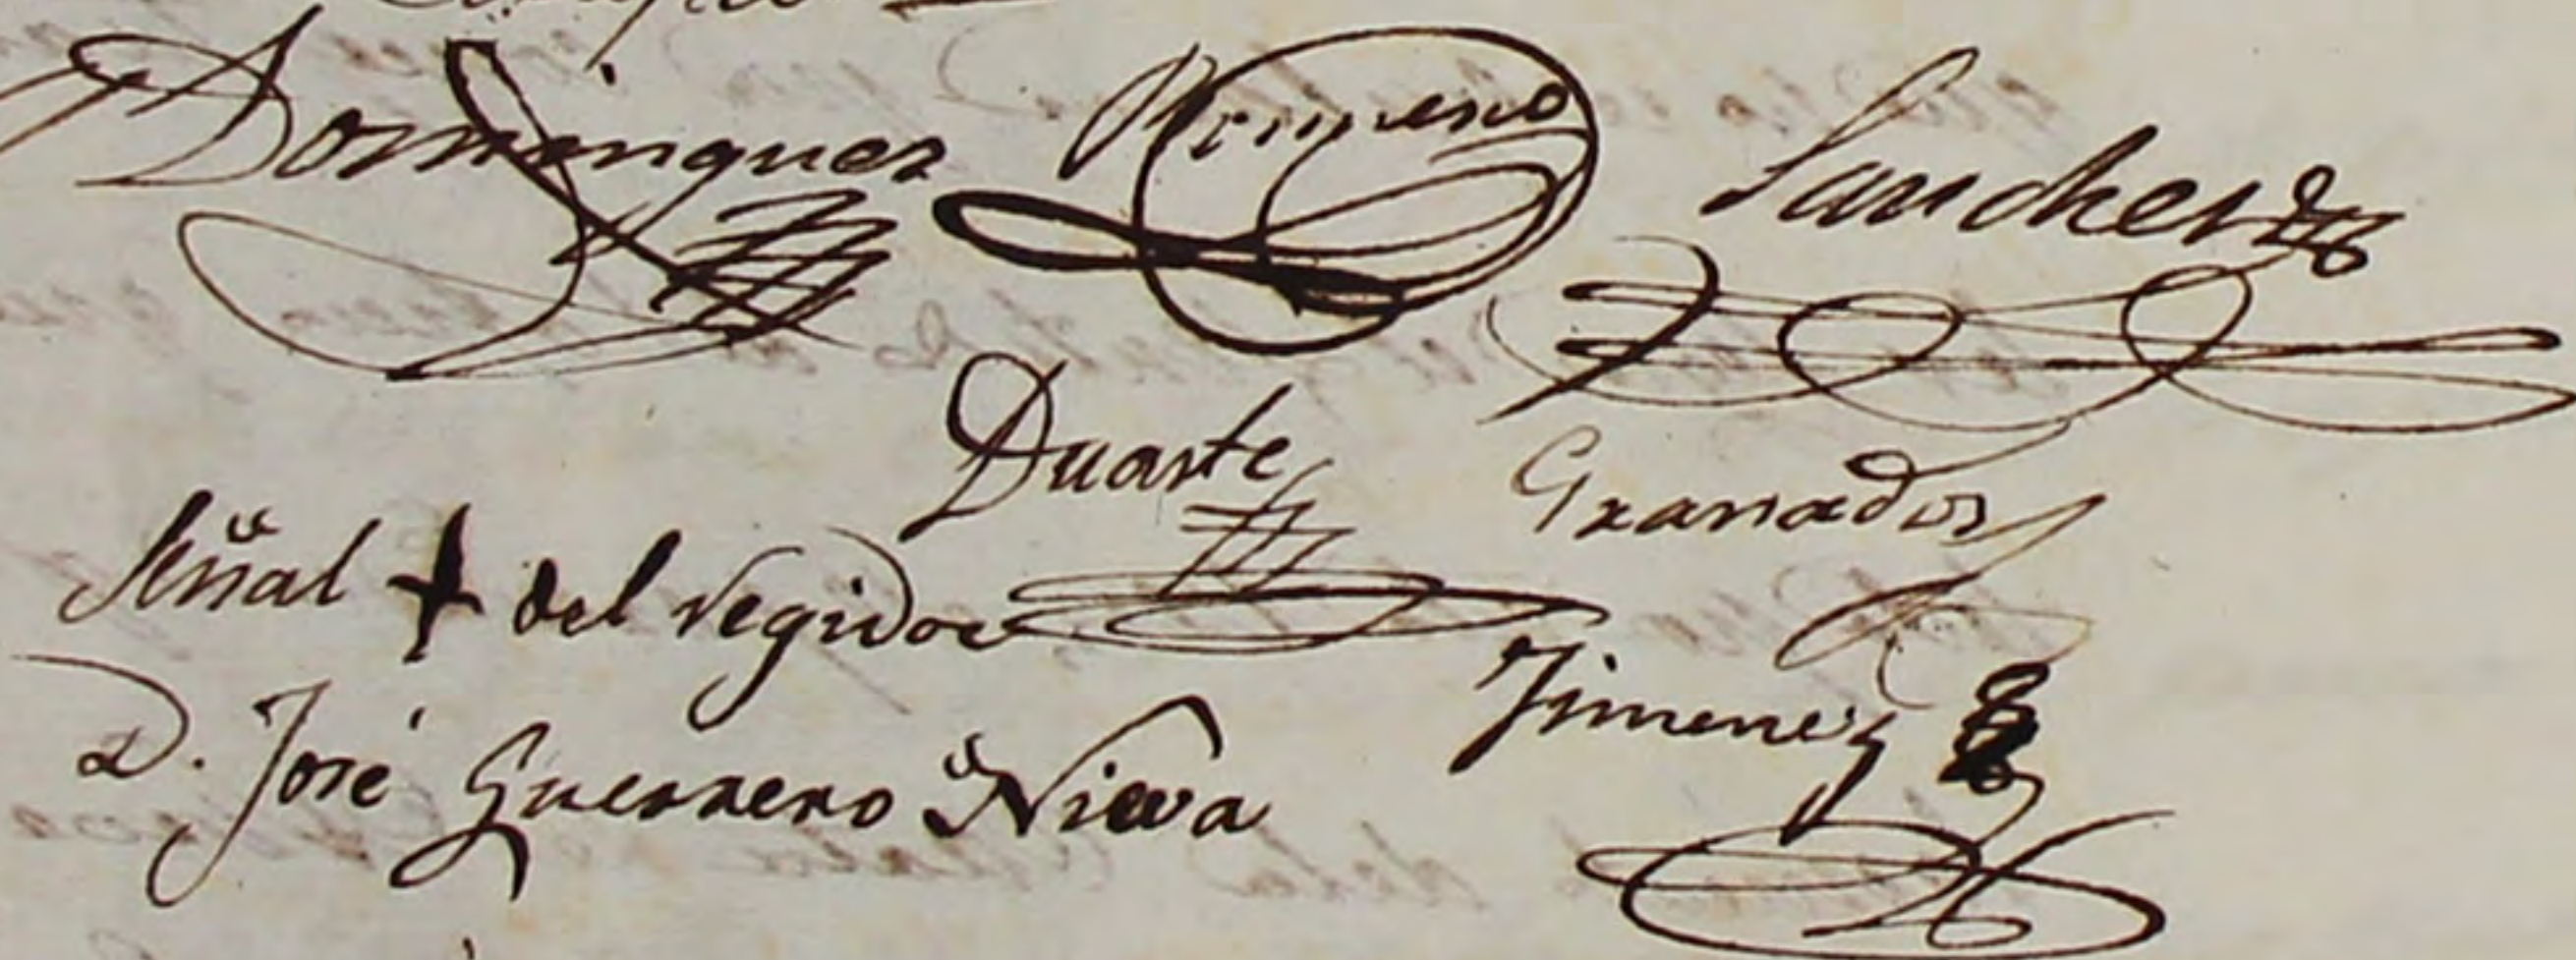 Dominguez Romero Sanchez
Duarte Granados
Señal + del regidor
Jimenez
D. José Guerrero Nieva